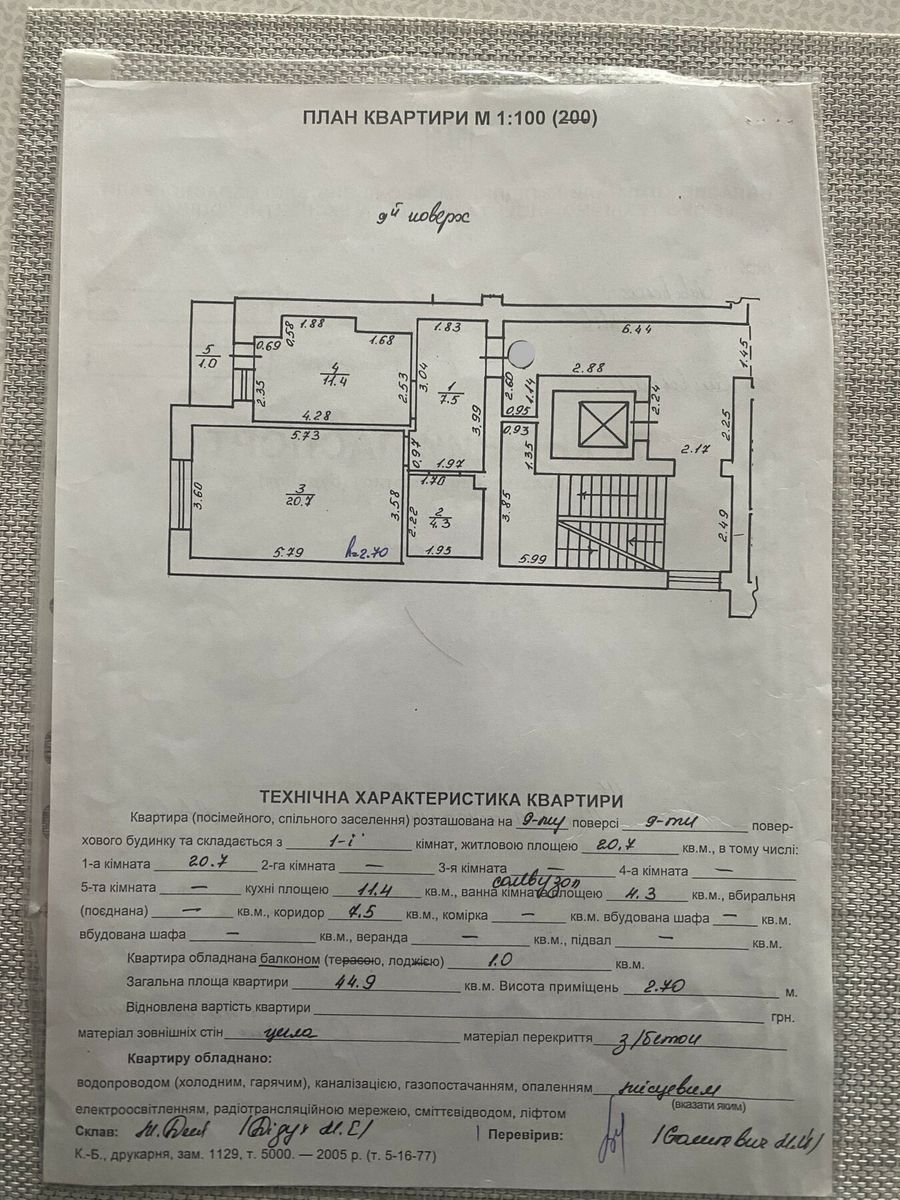 ПЛАН КВАРТИРИ М 1:100 (200)
9й поверх
6.44
1.88
0.58
1.68
0.69
5
1.0
4
11.4
2.35
2.53
4.28
1.83
3.04
1
7.5
3.99
0.97
1.97
2.60
1.14
0.95
2.88
2.24
1.45
2.25
2.17
0.93
1.35
5.73
3.60
3
20.7
3.58
5.79
h=2.70
1.70
2.22
2
4.3
1.95
3.85
5.99
2.49
ТЕХНІЧНА ХАРАКТЕРИСТИКА КВАРТИРИ
Квартира (посімейного, спільного заселення) розташована на 9-му поверсі 9-ти повер-
хового будинку та складається з 1-ї кімнат, житловою площею 20,7 кв.м., в тому числі:
1-а кімната 20.7 2-га кімната — 3-я кімната — 4-а кімната —
санвузол
5-та кімната — кухні площею 11.4 кв.м., ванна кімната площею 4.3 кв.м., вбиральня
(поєднана) — кв.м., коридор 7.5 кв.м., комірка — кв.м. вбудована шафа — кв.м.
вбудована шафа — кв.м., веранда — кв.м., підвал — кв.м.
Квартира обладнана балконом (терасою, лоджією) 1.0 кв.м.
Загальна площа квартири 44.9 кв.м. Висота приміщень 2.70 м.
Відновлена вартість квартири грн.
матеріал зовнішніх стін цегла матеріал перекриття з/бетон
Квартиру обладнано:
водопроводом (холодним, гарячим), каналізацією, газопостачанням, опаленням місцевим
(вказати яким)
електроосвітленням, радіотрансляційною мережею, сміттєвідводом, ліфтом
Склав: Перевірив:
К.-Б., друкарня, зам. 1129, т. 5000. — 2005 р. (т. 5-16-77)